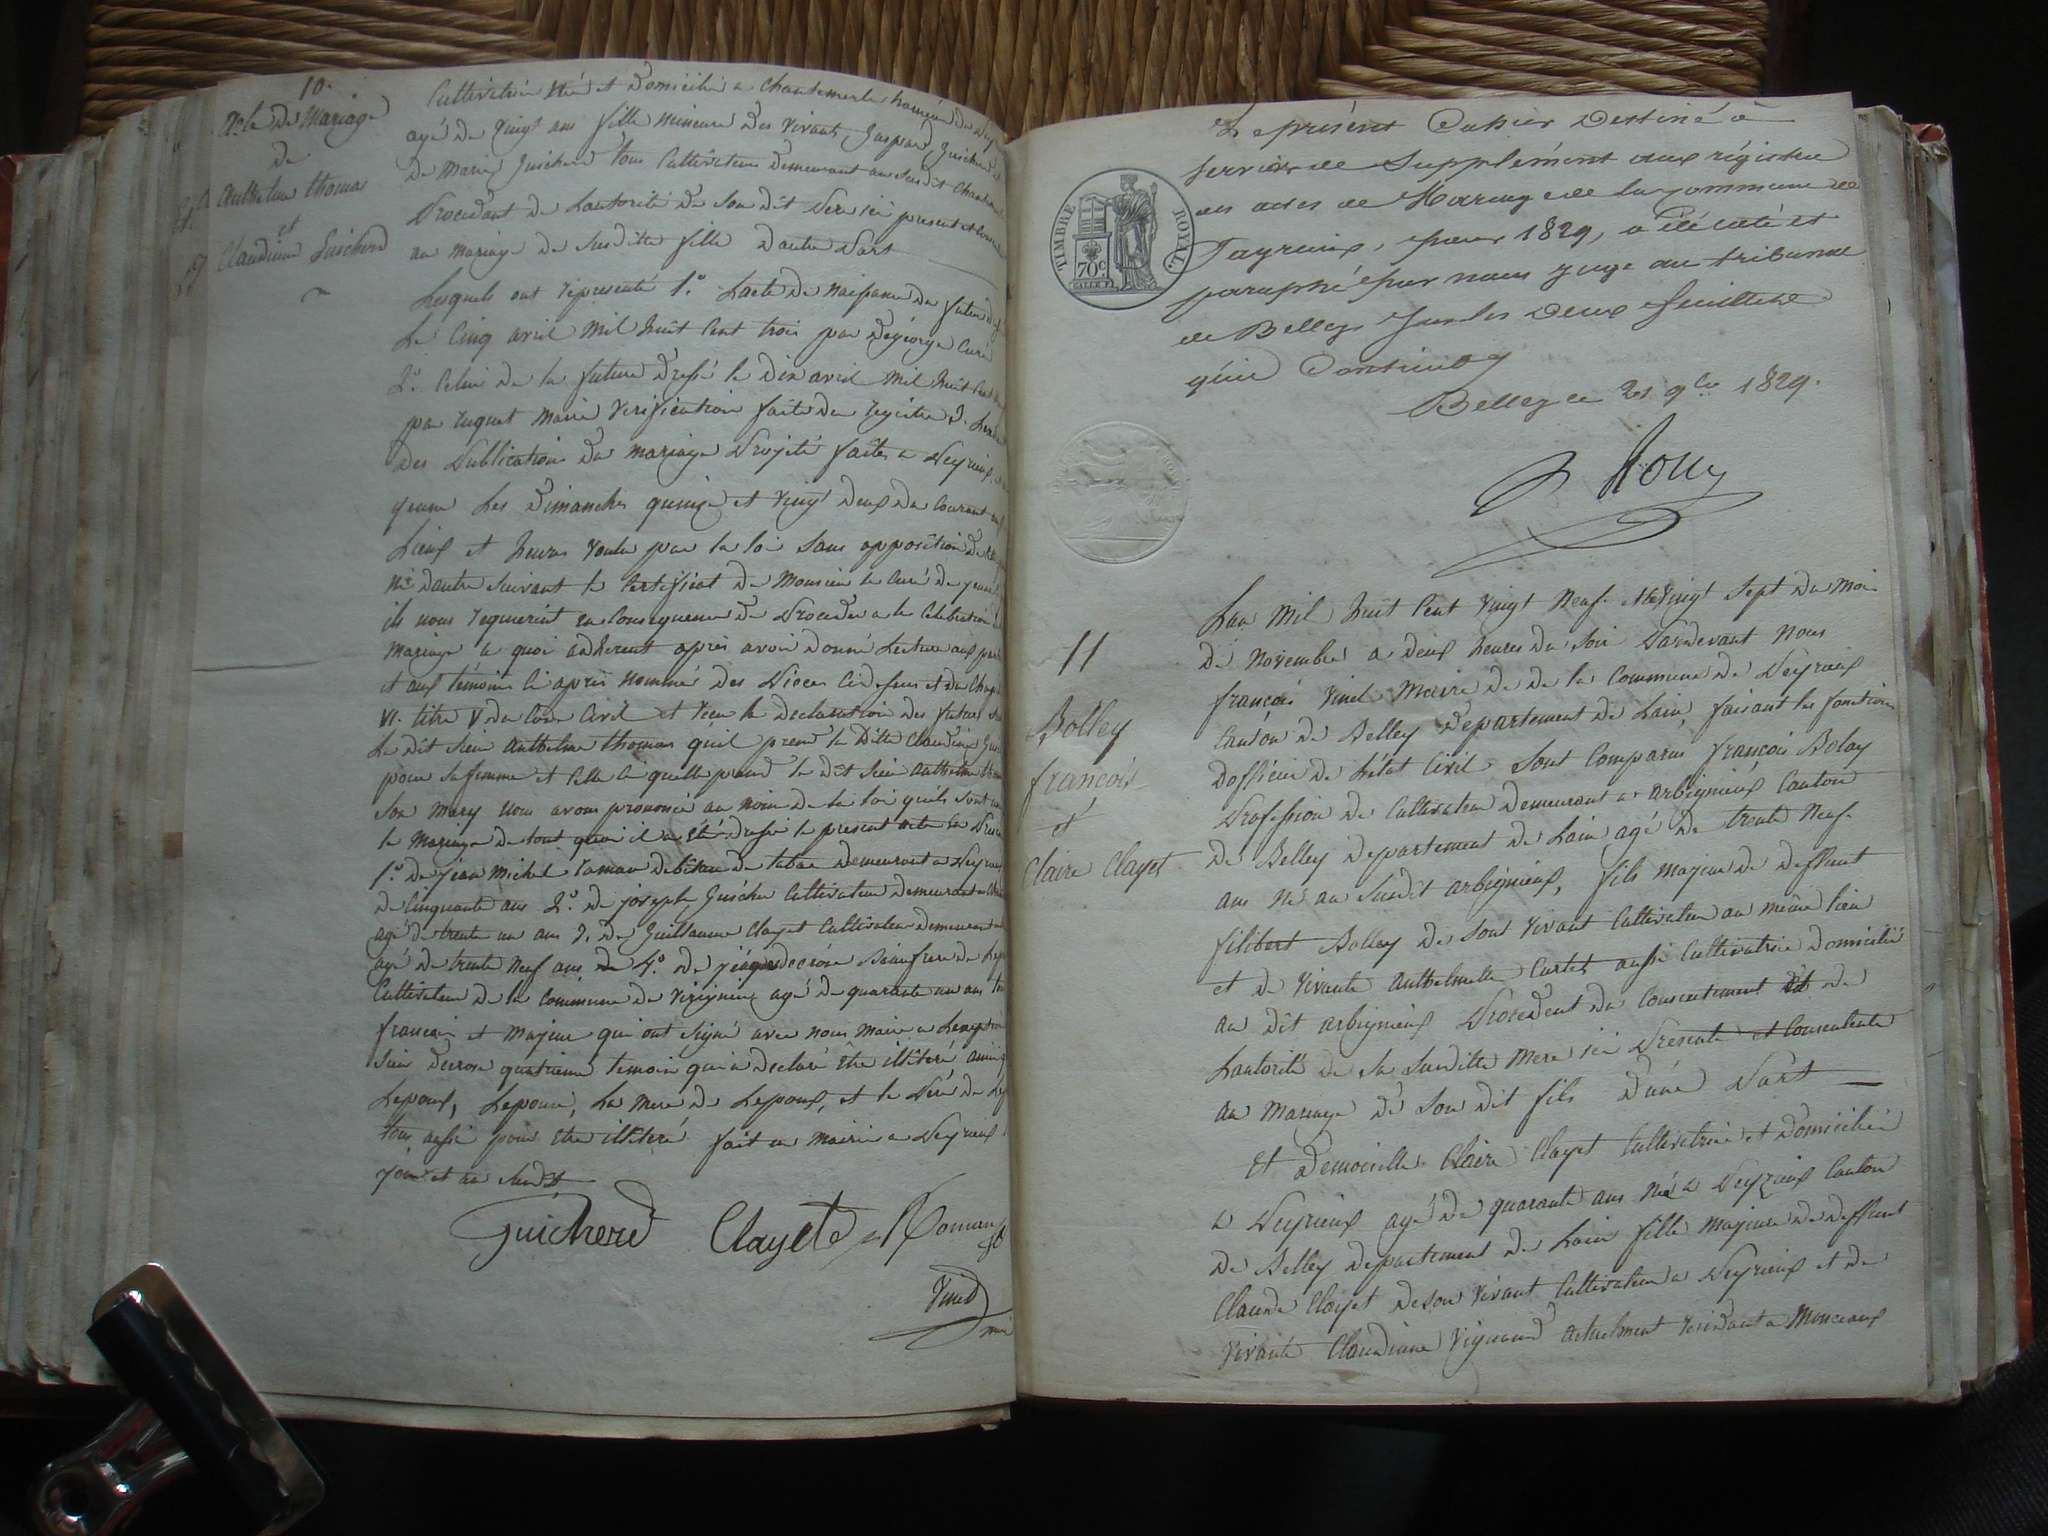 10.
Acte de Mariage
de
Anthelme thomas
et
Claudine Guicherd
Cultivatrice née et Domicilié a Chantemerle hameau de
agé de vingt ans fille mineure des vivants, Gaspard Guicherd
De Marie Guicherd tous Cultivateurs demeurant au susdit
Procedant de Lautorité de son dit Pere ici present et
au mariage de susditte fille dautre Part
Lesquels ont representé 1.o Lacte de naissance du futur
Le Cinq avril mil huit Cent trois par Curé
2.o Celui de la future dressé le dix avril mil huit Cent
par maire verification faite du registre 3.
Des Publication du mariage Projeté faites a Peyrieux
yenne Les Dimanches quinze et vingt deux du Courant aux
Lieux et heures voulu par la loi sans opposition
ni dautre suivant le Certificat de Monsieur le Curé de yenne
ils nous requierent en Consequence de Proceder a la Celebration
mariage a quoi adherent après avoir donné Lecture aux
et aux témoins Ci après nommés des Pieces Ci dessus et du Chap
VI. titre V du Code Civil et recu la declaration des futurs
Le dit Sieur Anthelme thomas quil prend la ditte Claudine
pour sa femme et Celle Ci quelle prend le dit Sieur Anthelme
Son mary nous avons prononcé au nom de la loi quils sont unis
le mariage de tout quoi il a été dressé le present acte en
1.o de jean Michel Roman debitant de tabac demeurant a Peyrieux
de Cinquante ans 2.o de joseph Guicher Cultivateur demeurant
agé de trente un ans 3. de Guillaume Clayet Cultivateur demeurant
agé de trente neuf ans de 4.o de decrose Beaufrere de
Cultivateur de la Commune de virignieu agé de quarante un ans
francais et majeur qui ont signé avec nous maire a lexception
Sieur decrose quatrieme temoin qui a declaré être illiteré ainsi
Lepoux, Lepouse, La mere de Lepoux, et le Père de
tous aussi pour être illiteré fait en mairie a Peyrieux
jour et an susdit
Guicherd Clayet Roman
Vinet
Le présent Cahier Destiné à
servir de Supplément aux régistre
des actes de Mariage de la commune de
Peyrieux, pour 1829, a été coté et
paraphé par nous juge au tribunal
de Belley sur les deux feuillets
qu'il Contient
Belley ce 21 9.bre 1829.
TIMBRE ROYAL
70c
11
Bolley
francois
et
Claire Clayet
Lan Mil huit Cent vingt Neuf le vingt Sept du Mois
de Novembre a deux heures du Soir Pardevant Nous
françois Vinet Maire de de la Commune de Peyrieux
Canton de Belley Departement de Lain, faisant les fonctions
Dofficier de Létat Civil Sont Comparus françois Boley
Profession de Cultivateur demeurant a arbignieux Canton
De Belley departement de Lain agé de trente Neuf
ans Né au Susdit arbignieux, fils majeur de deffunt
filibert Bolley De Sont vivant Cultivateur au même lieu
et de vivante Anthelmette Curtet aussi Cultivatrice domicilié
au dit arbignieux Procedent du Consentement et de
Lautorité de Sa Susditte Mere ici Présente et Consentente
au mariage de Son dit fils D'une Part
et Demoiselle Claire Clayet Cultivatrice et Domicilié
a Peyrieux agé de quarante ans Né a Peyrieux Canton
De Belley departement de Lain fille majeure de deffunt
Claude Clayet deson vivant Cultivateur a Peyrieux et de
vivante Claudinne Vignand actuelment residant a Monceaux